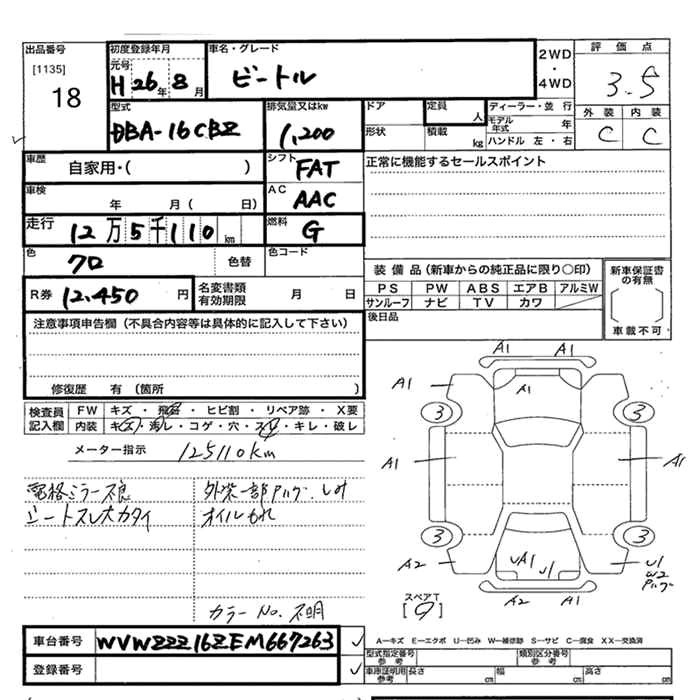 出品番号
[1135]
18
初度登録年月
元号
H 26年 8月
車名・グレード
ビートル
2WD
・
4WD
評価点
3.5
外装 内装
C C
型式
DBA-16CBZ
排気量又はkw
1,200
ドア
定員
人
ディーラー・並行
モデル年式 年
形状
積載
kg
ハンドル 左・右
車歴
自家用・( )
シフト
FAT
正常に機能するセールスポイント
車検
年 月( 日)
AC
AAC
走行
12万5千110km
燃料
G
色
クロ
色替
色コード
装備品(新車からの純正品に限り○印)
PS PW ABS エアB アルミW
サンルーフ ナビ TV カワ
新車保証書の有無
車載不可
R券 12,450円
名変書類有効期限 月 日
後日品
注意事項申告欄(不具合内容等は具体的に記入して下さい)
修復歴 有(箇所 )
検査員記入欄
FW キズ・飛石・ヒビ割・リペア跡・X要
内装 キズ・汚レ・コゲ・穴・スレ・キレ・破レ
メーター指示 125110km
電格ミラー不良
シートスレ大カタイ
オイルもれ
カラーNo.不明
A1 A1
A1 A1 A1
3 3
A1 A1
3 3
A2 U1
W2
UA1 U1
A2 A1
スペアT
A―キズ E―エクボ U―凹み W―補修跡 S―サビ C―腐食 XX―交換済
車台番号 WVWZZZ16ZEM667263
登録番号
型式指定番号
参考
類別区分番号
参考
車庫証明用
参考
長さ cm 幅 cm 高さ cm